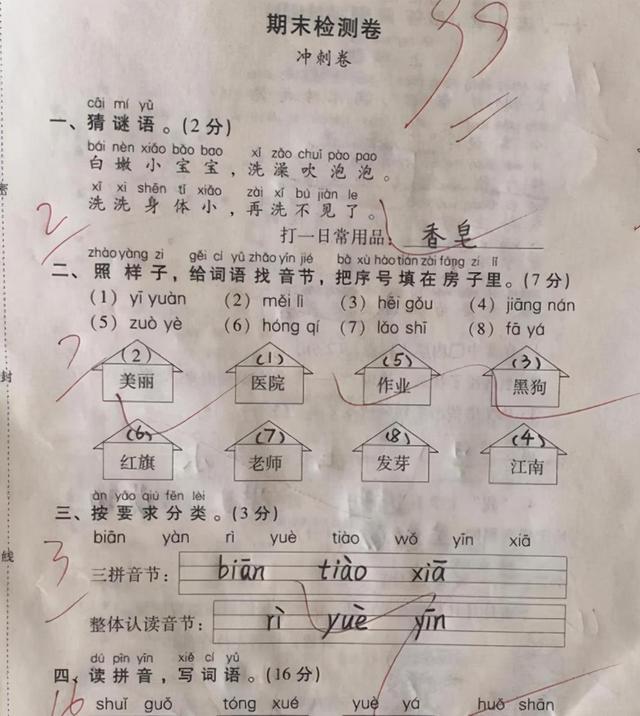 期末检测卷
99
冲刺卷
cāi mí yǔ
一、猜谜语。(2分)
bái nèn xiǎo bǎo bao xǐ zǎo chuī pào pao
白嫩小宝宝，洗澡吹泡泡。
xǐ xi shēn tǐ xiǎo zài xǐ bú jiàn le
洗洗身体小，再洗不见了。
2
打一日常用品：香皂
zhào yàng zi gěi cí yǔ zhǎo yīn jié bǎ xù hào tián zài fáng zi lǐ
二、照样子，给词语找音节，把序号填在房子里。(7分)
(1) yī yuàn (2) měi lì (3) hēi gǒu (4) jiāng nán
(5) zuò yè (6) hóng qí (7) lǎo shī (8) fā yá
7
(2) (1) (5) (3)
美丽 医院 作业 黑狗
(6) (7) (8) (4)
红旗 老师 发芽 江南
àn yāo qiú fēn lèi
三、按要求分类。(3分)
biān yàn rì yuè tiào wǒ yīn xiā
3
三拼音节：biān tiào xiā
整体认读音节：rì yuè yīn
dú pīn yīn xiě cí yǔ
四、读拼音，写词语。(16分)
16
shuǐ guǒ tóng xué yuè yá huǒ shān
密
封
线